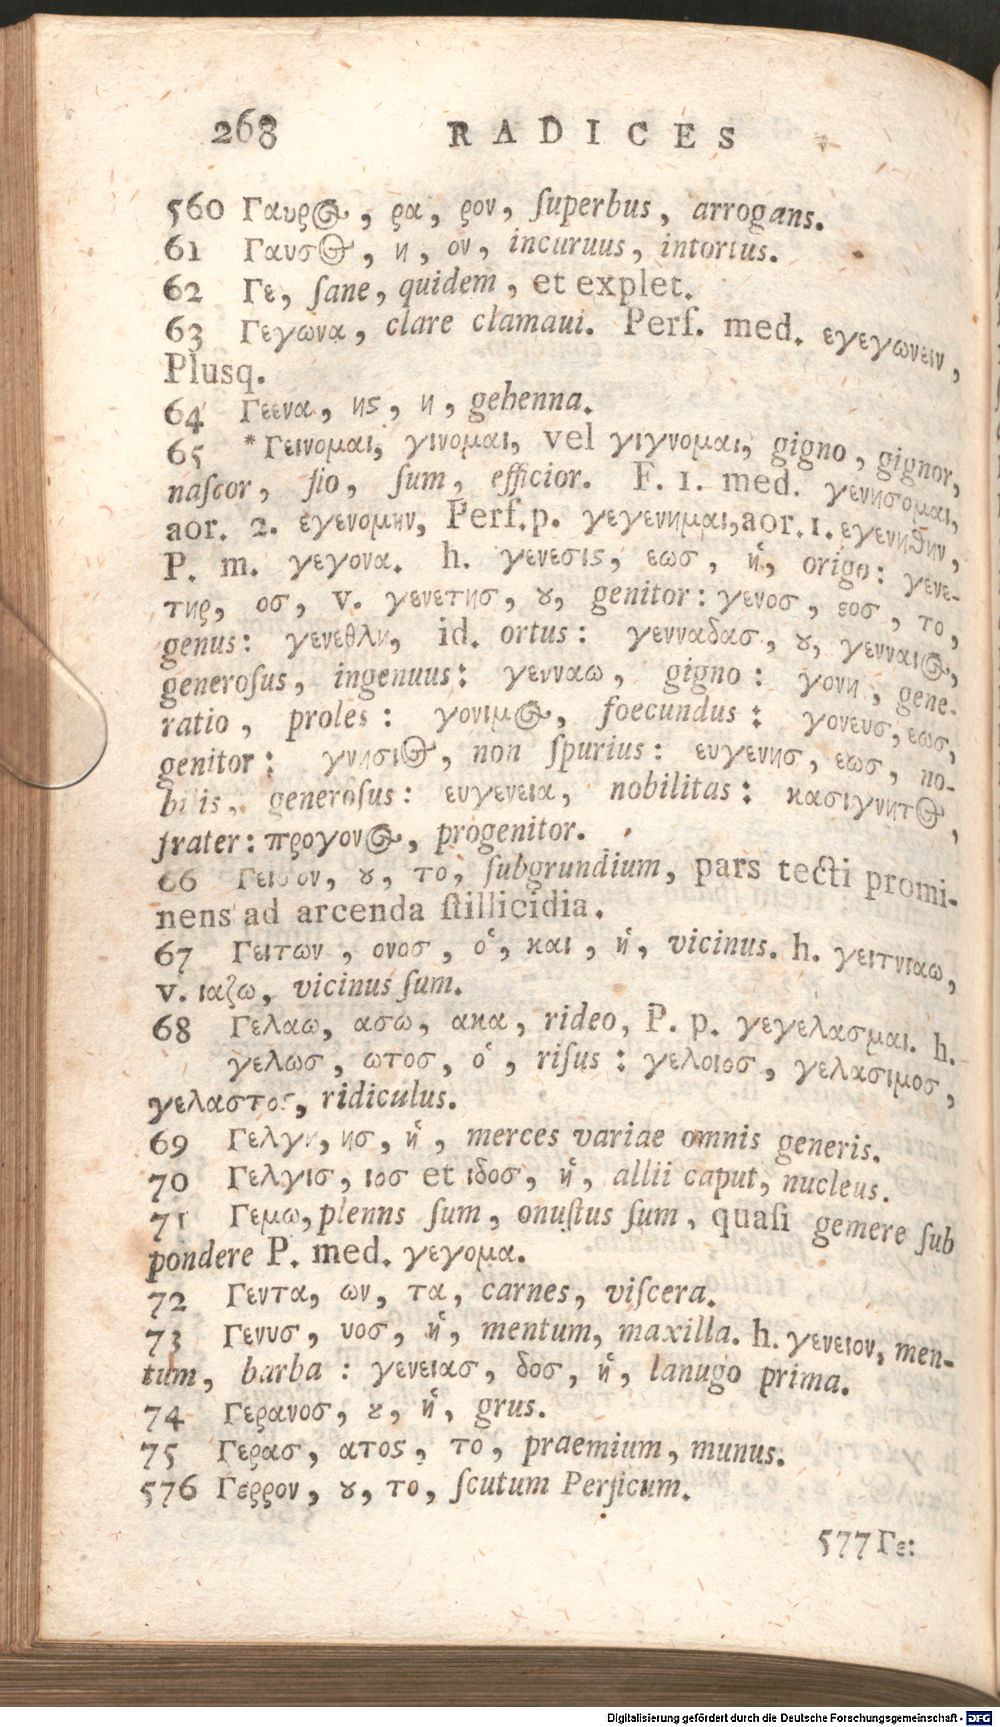 268 RADICES
560 Γαυρος, ρα, ρον, ſuperbus, arrogans.
61 Γαυσος, η, ον, incuruus, intortus.
62 Γε, ſane, quidem, et explet.
63 Γεγωνα, clare clamaui. Perf. med. εγεγωνειν,
Plusq.
64 Γεενα, ης, η, gehenna.
65 *Γεινομαι, γινομαι, vel γιγνομαι, gigno, gignor,
naſcor, fio, ſum, efficior. F. 1. med. γενησομαι,
aor. 2. εγενομην, Perf. p. γεγενημαι, aor. 1. εγενηθην,
P. m. γεγονα. h. γενεσις, εως, ἡ, origo: γενε-
της, ος, v. γενετησ, ȣ, genitor: γενοσ, εος, το,
genus: γενεθλη, id. ortus: γενναδασ, ȣ, γενναιος,
generoſus, ingenuus: γενναω, gigno: γονη, gene-
ratio, proles: γονιμος, foecundus: γονευσ, εως,
genitor: γνησιος, non ſpurius: ευγενησ, εως, no-
bilis, generoſus: ευγενεια, nobilitas: κασιγνητος,
frater: προγονος, progenitor.
66 Γεισον, ȣ, το, ſubgrundium, pars tecti promi-
nens ad arcenda ſtillicidia.
67 Γειτων, ονοσ, ὁ, και, ἡ, vicinus. h. γειτνιαω,
v. ιαζω, vicinus ſum.
68 Γελαω, ασω, ακα, rideo, P. p. γεγελασμαι. h.
γελωσ, ωτος, ὁ, riſus: γελοιος, γελασιμος,
γελαστος, ridiculus.
69 Γελγη, ησ, ἡ, merces variae omnis generis.
70 Γελγισ, ιος et ιδος, ἡ, allii caput, nucleus.
71 Γεμω, plenns ſum, onuſtus ſum, quaſi gemere ſub
pondere P. med. γεγομα.
72 Γεντα, ων, τα, carnes, viſcera.
73 Γενυσ, υος, ἡ, mentum, maxilla. h. γενειον, men-
tum, barba: γενειασ, δος, ἡ, lanugo prima.
74 Γερανοσ, ȣ, ἡ, grus.
75 Γερασ, ατος, το, praemium, munus.
576 Γερρον, ȣ, το, ſcutum Perſicum.
577 Γε:
Digitalisierung gefördert durch die Deutsche Forschungsgemeinschaft - DFG